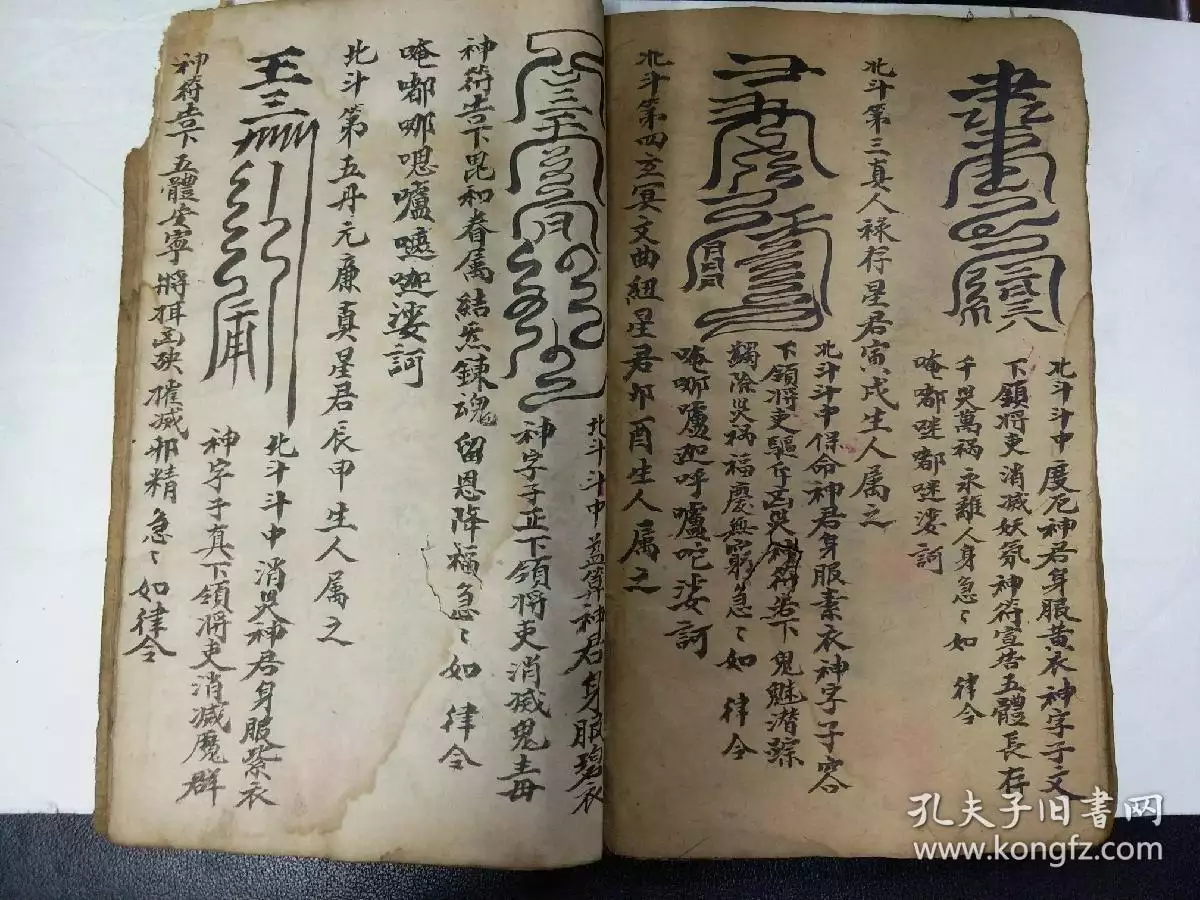 北斗斗中度厄神君身服黄衣神字子文
下領將吏消滅妖氛神符宣告五體長存
千災萬禍永離人身急〻如 律令
唵嘟嚰嘟嚰娑訶
北斗第三真人禄存星君寅戌生人属之
北斗斗中保命神君身服素衣神字子容
下領將吏驅斥凶災神符告下鬼魅潜踪
蠲除災禍福慶無窮急〻如 律令
唵哪嚧迦呼嚧吒娑訶
北斗第四玄冥文曲紐星君卯酉生人属之
北斗斗中益算神君身服碧衣
神字子正下領將吏消滅鬼毒
神符告下毘和眷属結炁鍊魂留恩降福急〻如 律令
唵嘟哪嗯嚧嘧迦娑訶
北斗第五丹元廉真星君辰申生人属之
北斗斗中消災神君身服紫衣
神字手真下領將吏消滅魔群
神符告下五體安寧將捍凶殃摧滅邪精急〻如律令
孔夫子旧书网
www.kongfz.com